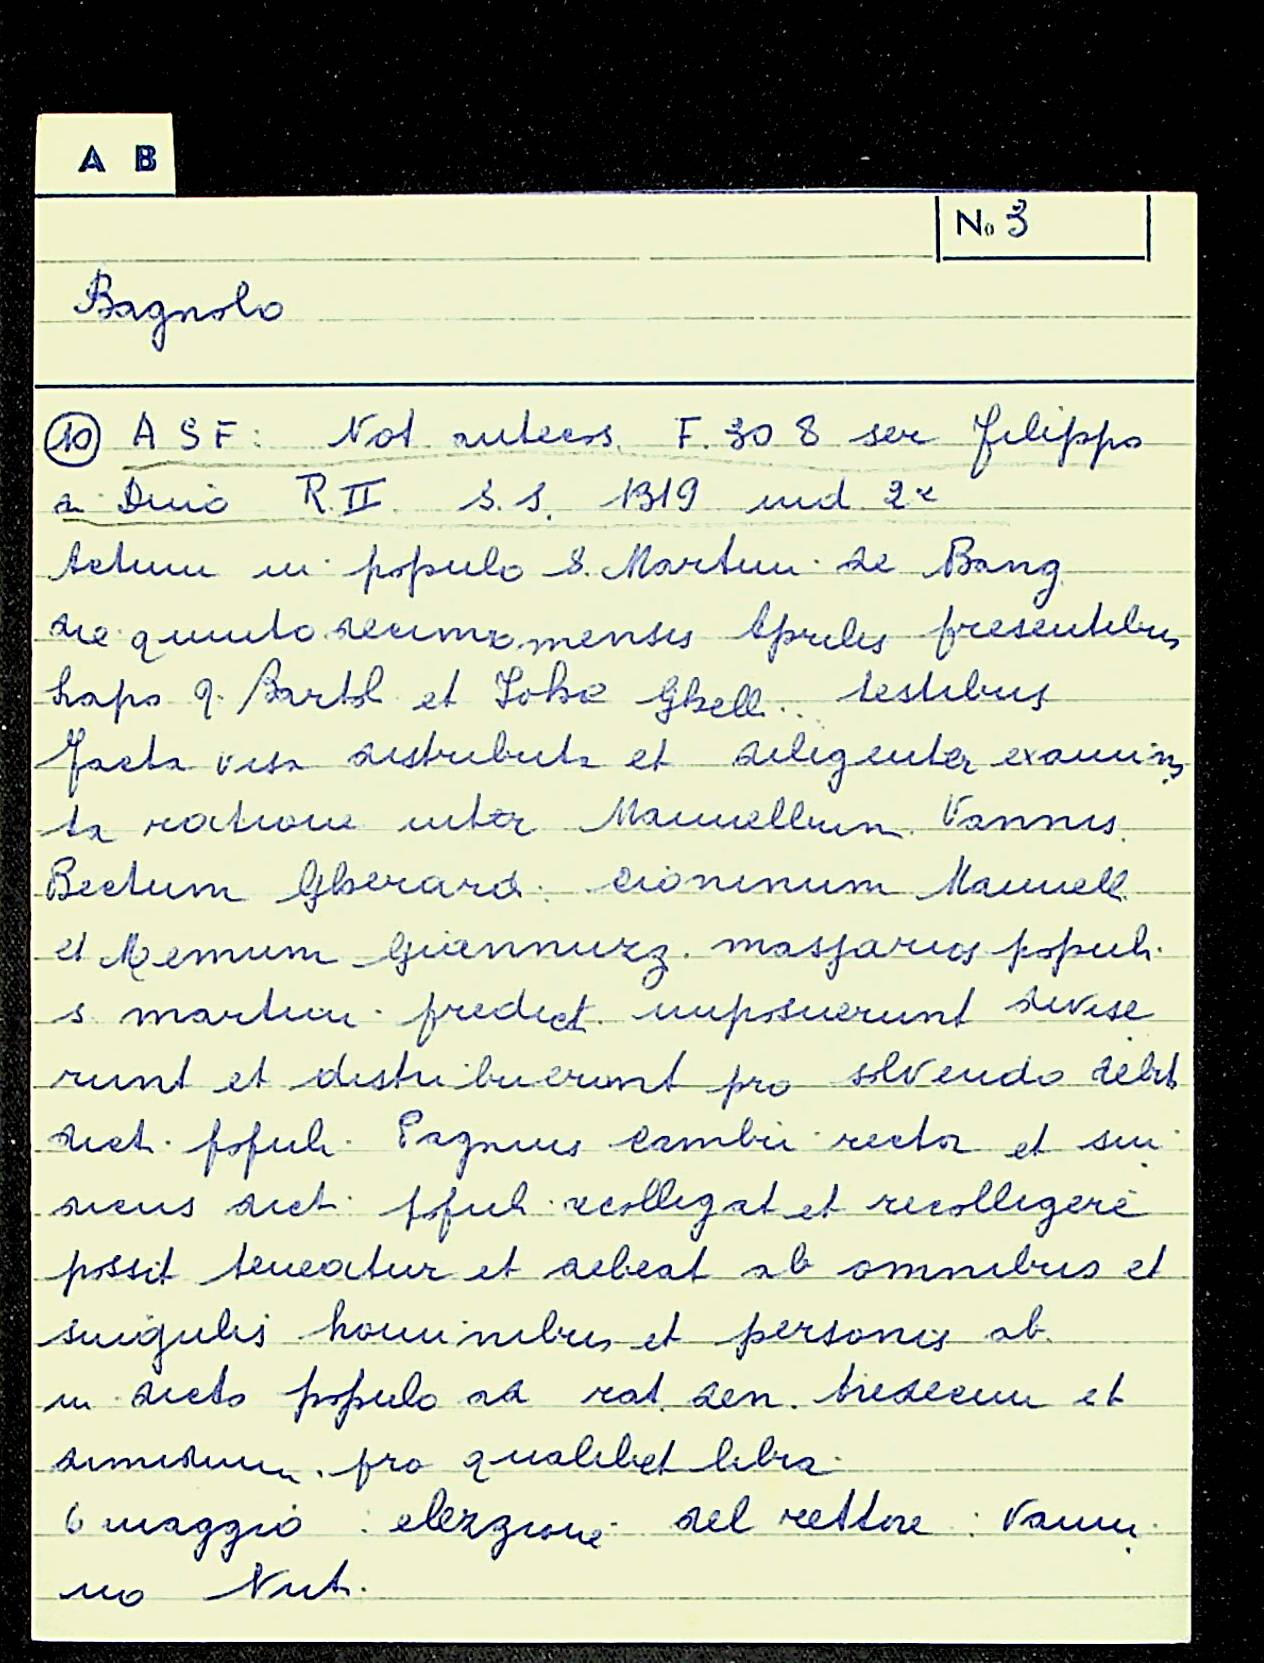 A B
No 3
Bagnolo
10 A S F: Not. antecos. F. 308 ser Filippo
a. Duio R. II. S. S. 1319 ind. 2ª
Actum in populo S. Martini de Bang.
die quintodecimo mensis Aprilis presentibus
Lapo q. Bartol. et Ghell.. testibus
Facta visa distributa et diligenter examina
ta ratione inter Mannellum Vannis.
Bectum Gherard. Cioninum Mannell.
et Memum Giannuzz. massarios populi.
s. martini. predict. imposuerunt divise
runt et distribuerunt pro solvendo debit
dict. populi. Pagnus Cambii rector et sin
dicus dict. populi recolligat et recolligere
possit teneatur et debeat ab omnibus et
singulis hominibus et personis ab.
in dicto populo ad rat. den. tredecim et
dimidium. pro qualibet libra.
6 maggio : elezzione del rettore : Vanni
no Nut.